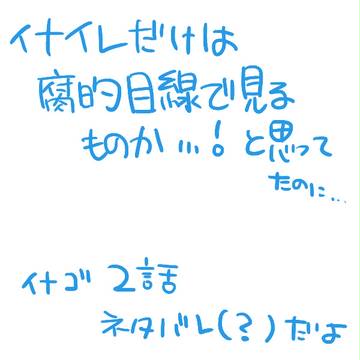 イナイレだけは
腐的目線で見る
ものか…！と思って
たのに…
イナゴ 2話
ネタバレ(?)だよ